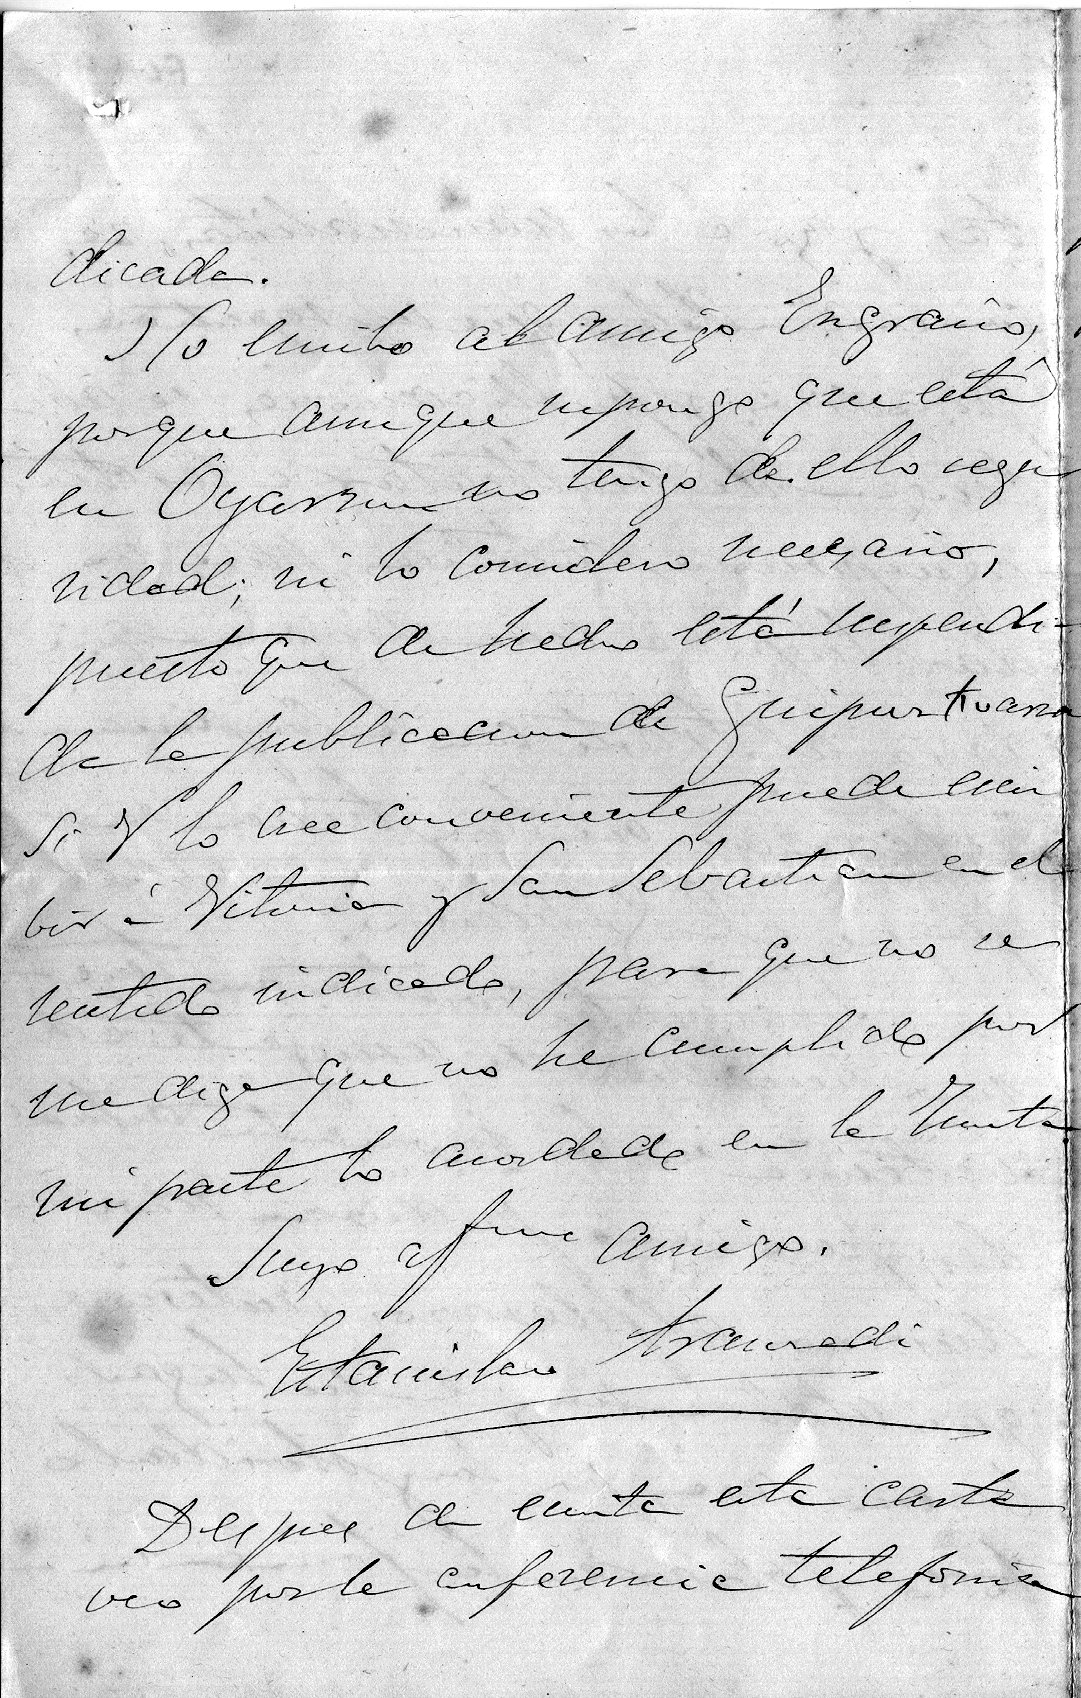 dicada.
No escribo al amigo Engracio,
porque aunque supongo que está
en Oyarzun no tengo de ello segu
ridad; ni lo considero necesario,
puesto que de hecho está suspendi-
da la publicacion de Guipuzkoarra
Si V lo cree conveniente puede escri
bir á Vitoria y San Sebastian en el
sentido indicado, para que no se
me diga que no he cumplido por
mi parte lo acordado en la Junta.
Suyo affmo amigo.
Estanislao Aranzadi
Despues de escrita esta carta
veo por la conferencia telefonica